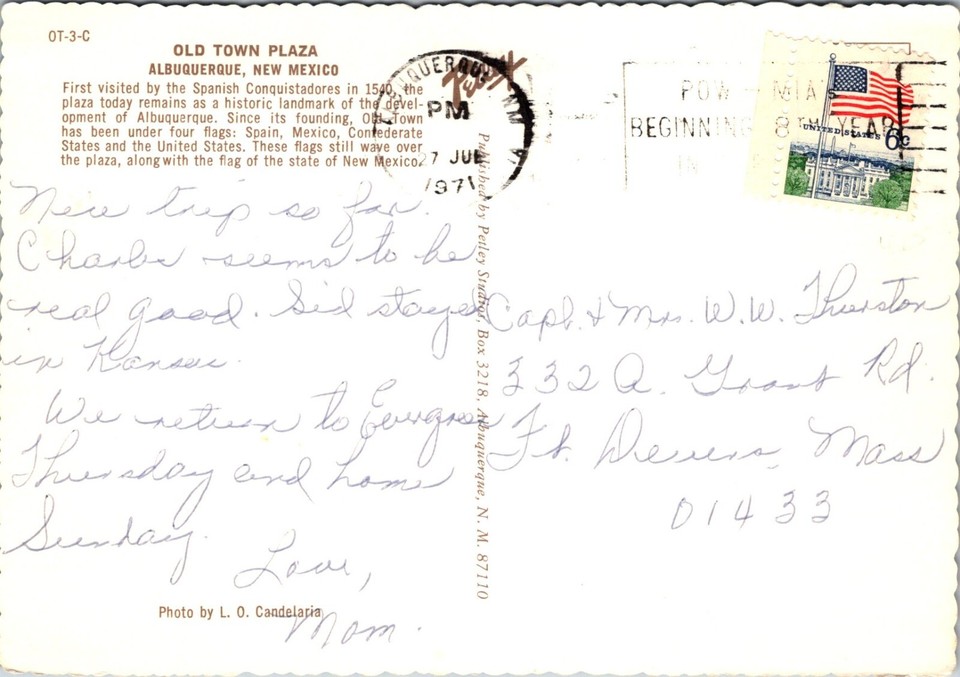 OT-3-C
OLD TOWN PLAZA
ALBUQUERQUE, NEW MEXICO
First visited by the Spanish Conquistadores in 1540, the
plaza today remains as a historic landmark of the devel-
opment of Albuquerque. Since its founding, Old Town
has been under four flags: Spain, Mexico, Confederate
States and the United States. These flags still wave over
the plaza, along with the flag of the state of New Mexico.
Nice trip so far.
Charles seems to be
real good. Sid stayed
in Kansas.
We return to Evergreen
Thursday and home
Sunday.
Love,
Mom.
Photo by L. O. Candelaria
Petley
Published by Petley Studios, Box 3218, Albuquerque, N. M. 87110
ALBUQUERQUE N.M.
PM
27 JUL
1971
POW MIA
BEGINNING 8TH YEAR
IN
UNITED STATES 6c
Capt. & Mrs. W. W. Thurston
332 A. Grant Rd.
Ft. Devens, Mass
01433